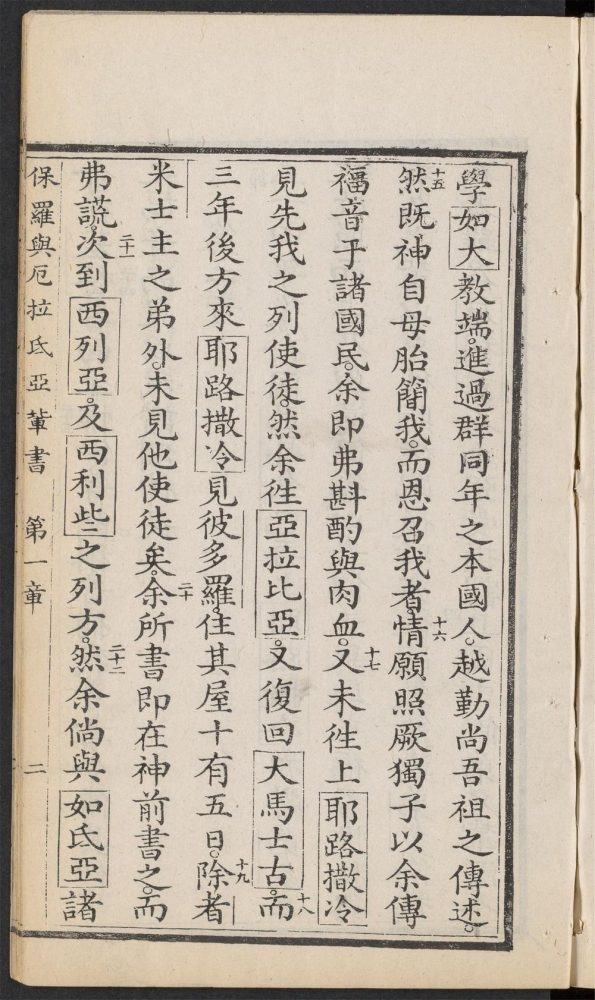 學如大教端。進過群同年之本國人。越勤尚吾祖之傳述。
十五然既神自母胎簡我。而恩召我者。十六情願照厥獨子以余傳
福音于諸國民。余即弗斟酌與肉血。十七又未徃上耶路撒冷
見先我之列使徒。然余徃亞拉比亞。又復回大馬士古。十八而
三年後方來耶路撒冷見彼多羅。住其屋十有五日。十九除者
米士主之弟外。未見他使徒矣。二十余所書即在神前書之。而
弗謊。二十一次到西列亞。及西利些之列方。二十二然余倘與如氏亞諸
保羅與厄拉氏亞輩書 第一章 二